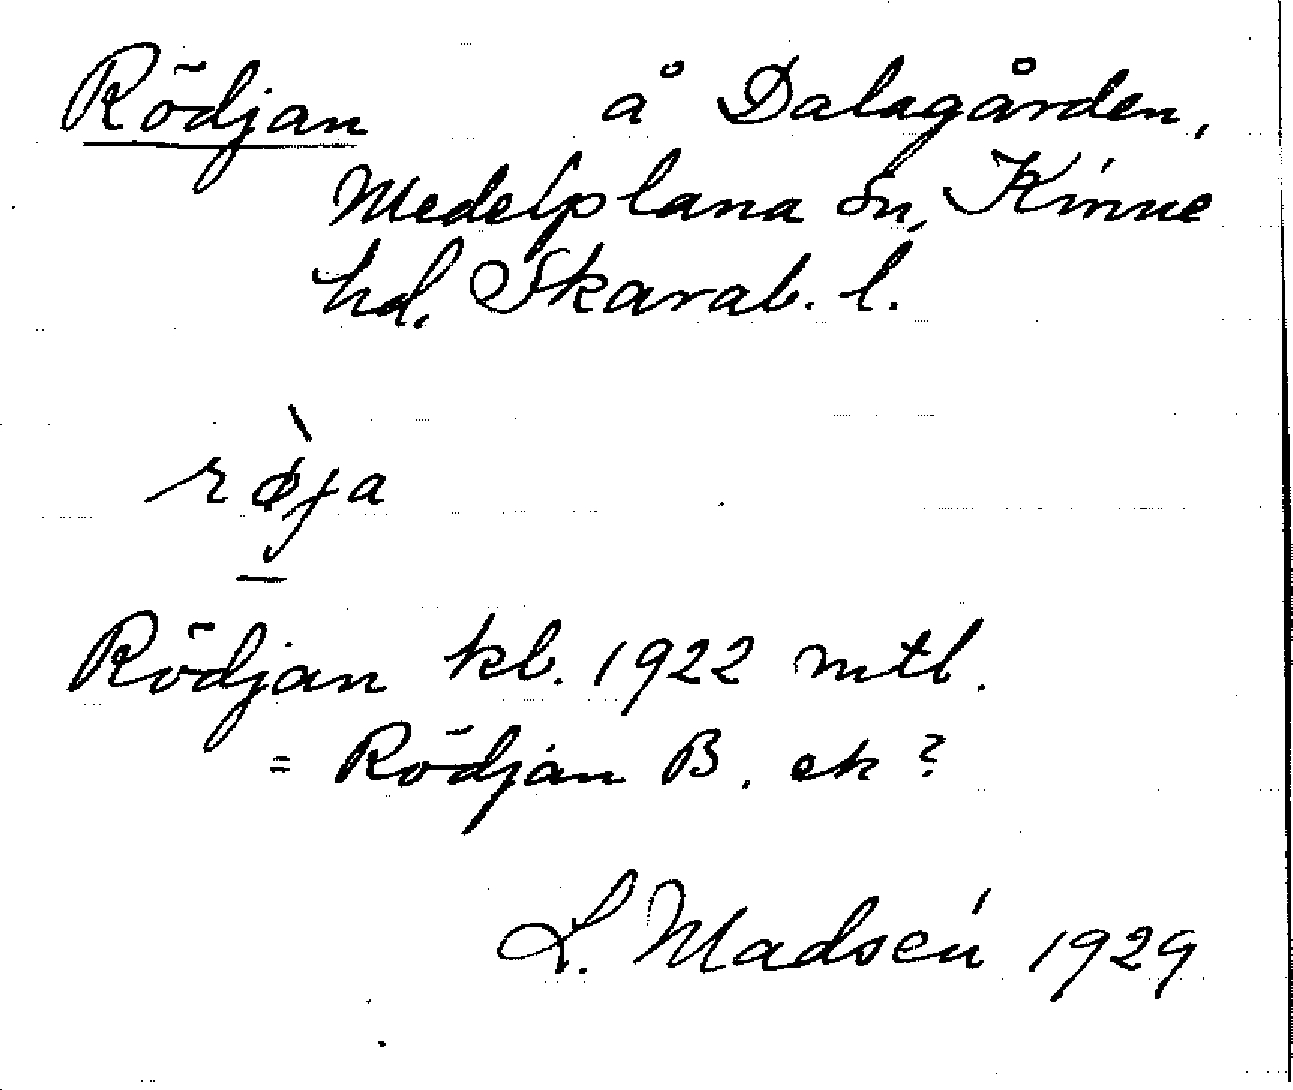 Rödjan å Dalagården,
Medelplana sn, Kinne
hd. Skarab. l.
rø̀ja
Rödjan kb. 1922 mtl.
= Rödjan B. ek?
L. Madsén 1929